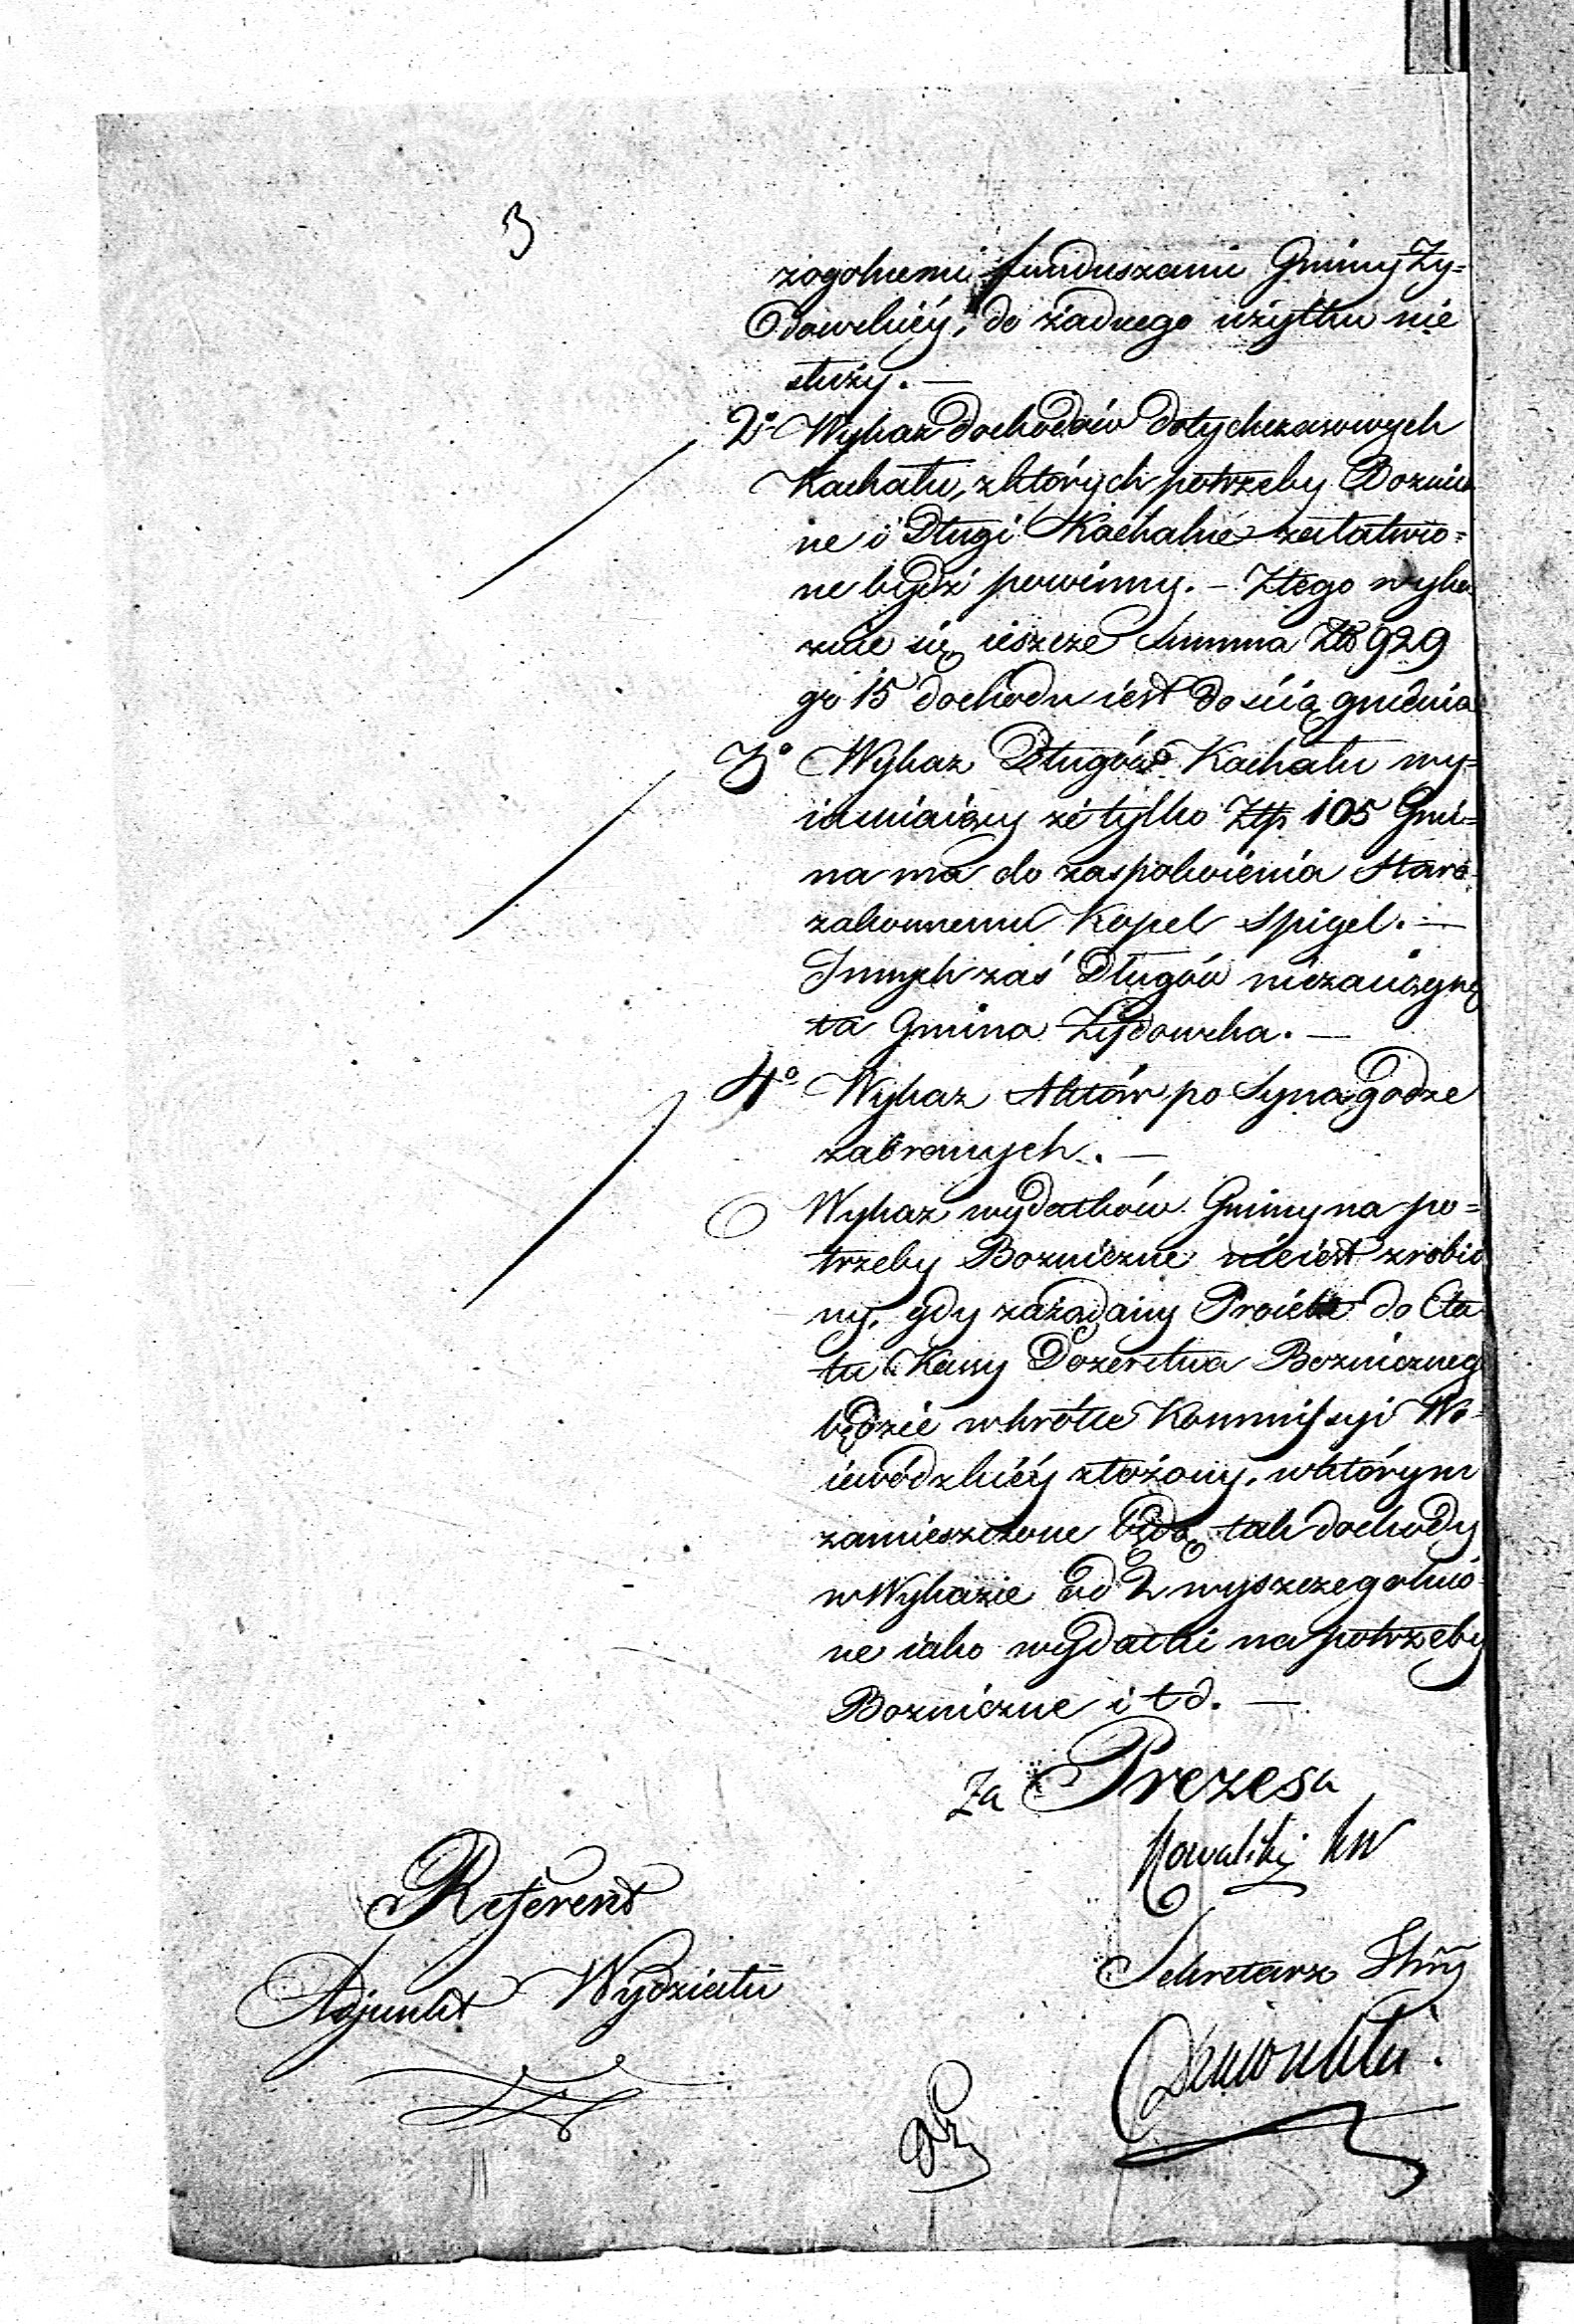 3
zogolnemi funduszami Gminy Ży=
dowskiéy, do żadnego użytku nie
służy. —
2o Wykaz dochodów dotychczasowych
Kachału, z których potrzeby Boźni
ne i Długi Kachalne załatwio=
ne bydź powinny. – Z tego wyka
zuie się ieszcze Summa Złt 929
gr 15 dochodu iest do sciągnienia
3o Wykaz Długów Kachału wy=
iasniaiący źe tylko Złp 105 Gmi=
na ma do zaspokoienia Staro
zakonnemu Kopel Spigel. —
Innych zaś Długów niezaciągnę
ła Gmina Żydowska. —
4o Wykaz Aktów po Synagodze
zabranych. —
Wykaz wydatków Gminy na po=
trzeby Bozniczne nieiest zrobio
ny, gdy zażądany Proiekt do Eta
tu Kassy Dozorstwa Boznicznego
będzie wkrótce Kommissyi Wo=
iewódzkiéy złożony, w którym
zamieszczone będą tak dochody
w Wykazie ad 2 wyszczegolnio
ne iako wydatki na potrzeby
Bozniczne i t d. —
Za Prezesa
Kowalski KW
Referent
Adjunkt Wydziału
Sekretarz